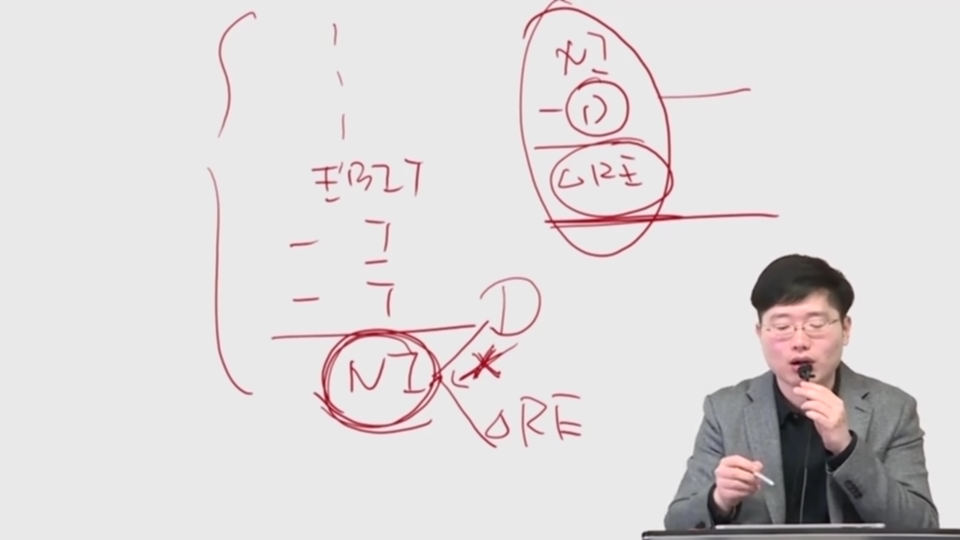 EBIT
- I
- T
NI
D
△RE
NI
- D
△RE